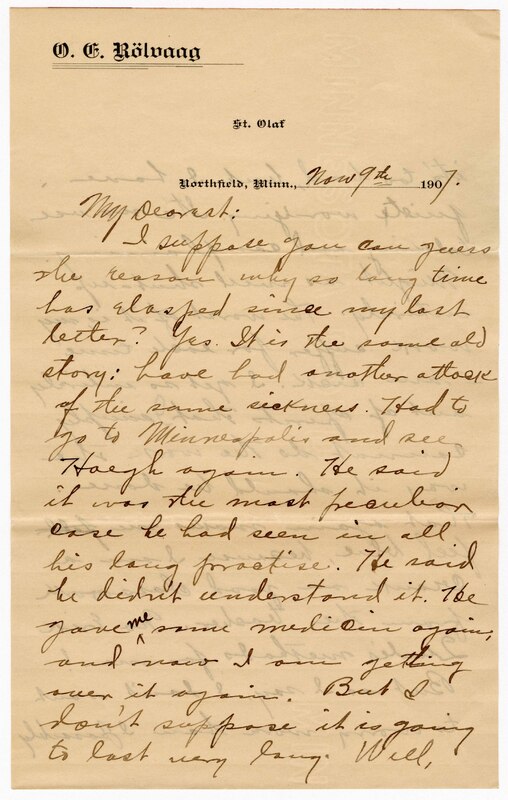 O. E. Rölvaag
St. Olaf
Northfield, Minn., Nov 9th 1907.
My Dearest:
I suppose you can guess
the reason why so long time
has elapsed since my last
letter? Yes. It is the same old
story: have had another attack
of the same sickness. Had to
go to Minneapolis and see
Hoegh again. He said
it was the most peculiar
case he had seen in all
his long practise. He said
he didn't understand it. He
gave me some medicin again,
and now I am getting
over it again. But I
don't suppose it is going
to last very long. Well,